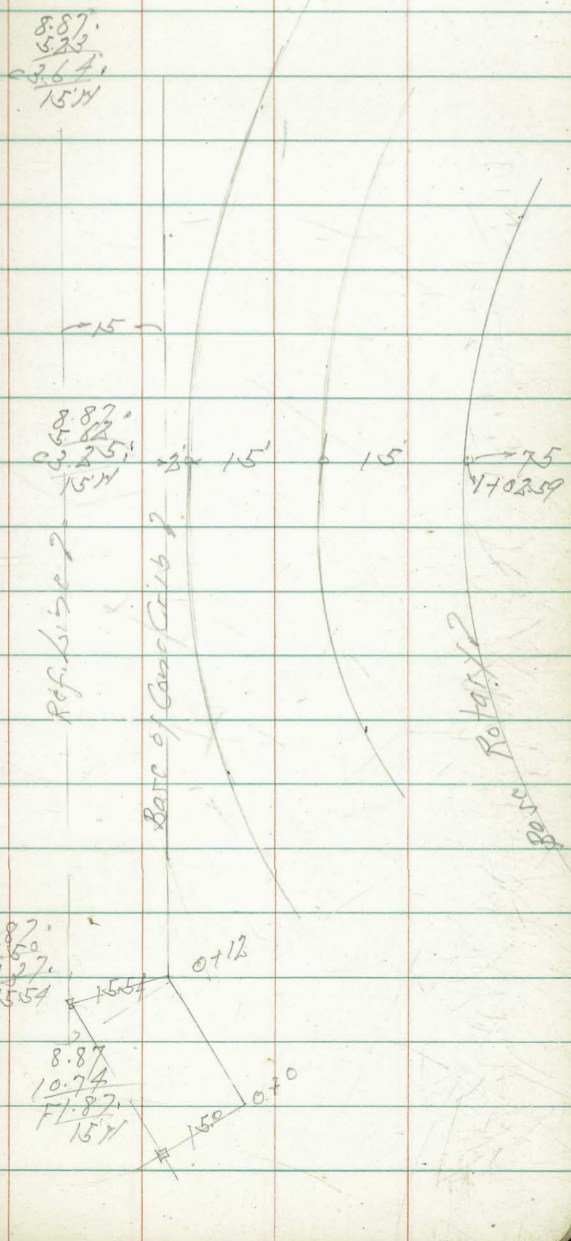 8.87.
5.23
C3.64.
15'W
15
8.87.
5.62
C3.25.
15'W
2' 15' 15' 75
1+02.59
Ref. Line
Base of Conc. Crib
Base Rotary
0+12
15.54
15.54
8.87
10.74
F1.87.
15'W
0+0
15.0